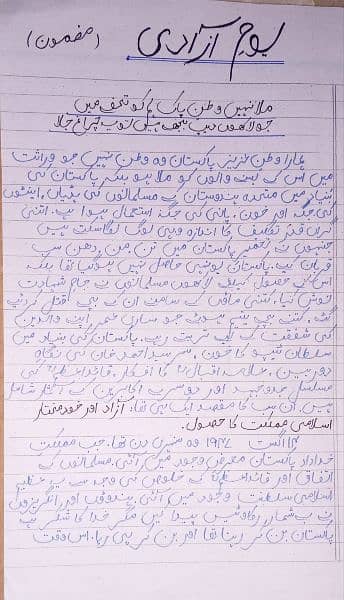 یوم آزادی (مضمون)
ملا نہیں وطن پاک ہم کو تحفے میں
جو لاکھوں دیپ بجھے ہیں تو یہ چراغ جلا
ہمارا وطن عزیز پاکستان وہ وطن نہیں جو وراثت
میں اس کے بسنے والوں کو ملا ہو بلکہ پاکستان کی
بنیاد میں متحدہ ہندوستان کے مسلمانوں کی ہڈیاں، اینٹوں
کی جگہ اور خون، پانی کی جگہ استعمال ہوا ہے۔ اتنی
گراں قدر تخلیق کا اندازہ وہی لوگ لگا سکتے ہیں
جنہوں نے تعمیر پاکستان میں تن من دھن سب
قربان کیے۔ پاکستان یونہی حاصل نہیں ہو گیا تھا بلکہ
اس کے حصول کیلئے لاکھوں مسلمانوں نے جام شہادت
نوش کیا، کتنی ماؤں کے سامنے ان کے بچے قتل کر دیے
گئے۔ کتنے بچے یتیم ہوئے جو ساری عمر اپنے والدین
کی شفقت کے لیے ترستے رہے۔ پاکستان کی بنیاد میں
سلطان ٹیپو کا خون، سرسید احمد خان کی نگاہ
دور بین، علامہ اقبال کا افکار، قائداعظم کی
مسلسل جدوجہد اور دوسرے اکابرین کے آثار شامل
ہیں۔ ان سب کا مقصد ایک ہی تھا، آزاد اور خودمختار
اسلامی مملکت کا حصول۔
۱۴ اگست ۱۹۴۷ وہ سنہری دن تھا۔ جب مملکت
خداداد پاکستان معرض وجود میں آئی مسلمانوں کے
اتفاق اور قائداعظم کے خلوص کی وجہ سے یہ عظیم
اسلامی سلطنت وجود میں آئی۔ ہندوؤں اور انگریزوں
نے بے شمار رکاوٹیں پیدا کیں مگر خدا کا شکر ہے
پاکستان بن کر رہنا تھا اور بن کر ہی رہا۔ اس وقت